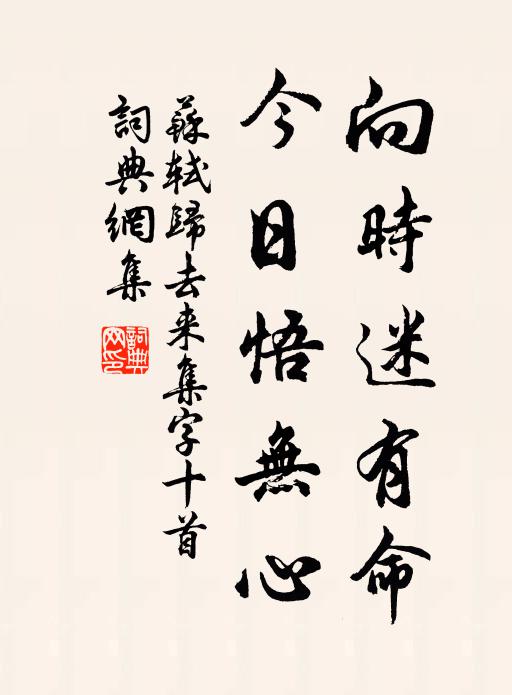 向時迷有命
今日悟無心
蘇軾歸去来集字十首
詞典網集
詞典
网印